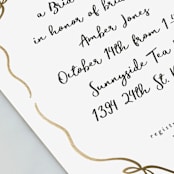 a Brid
in honor of brid
Amber Jones
October 14th from 1
Sunnyside Tea
1394 24th St. N
regist